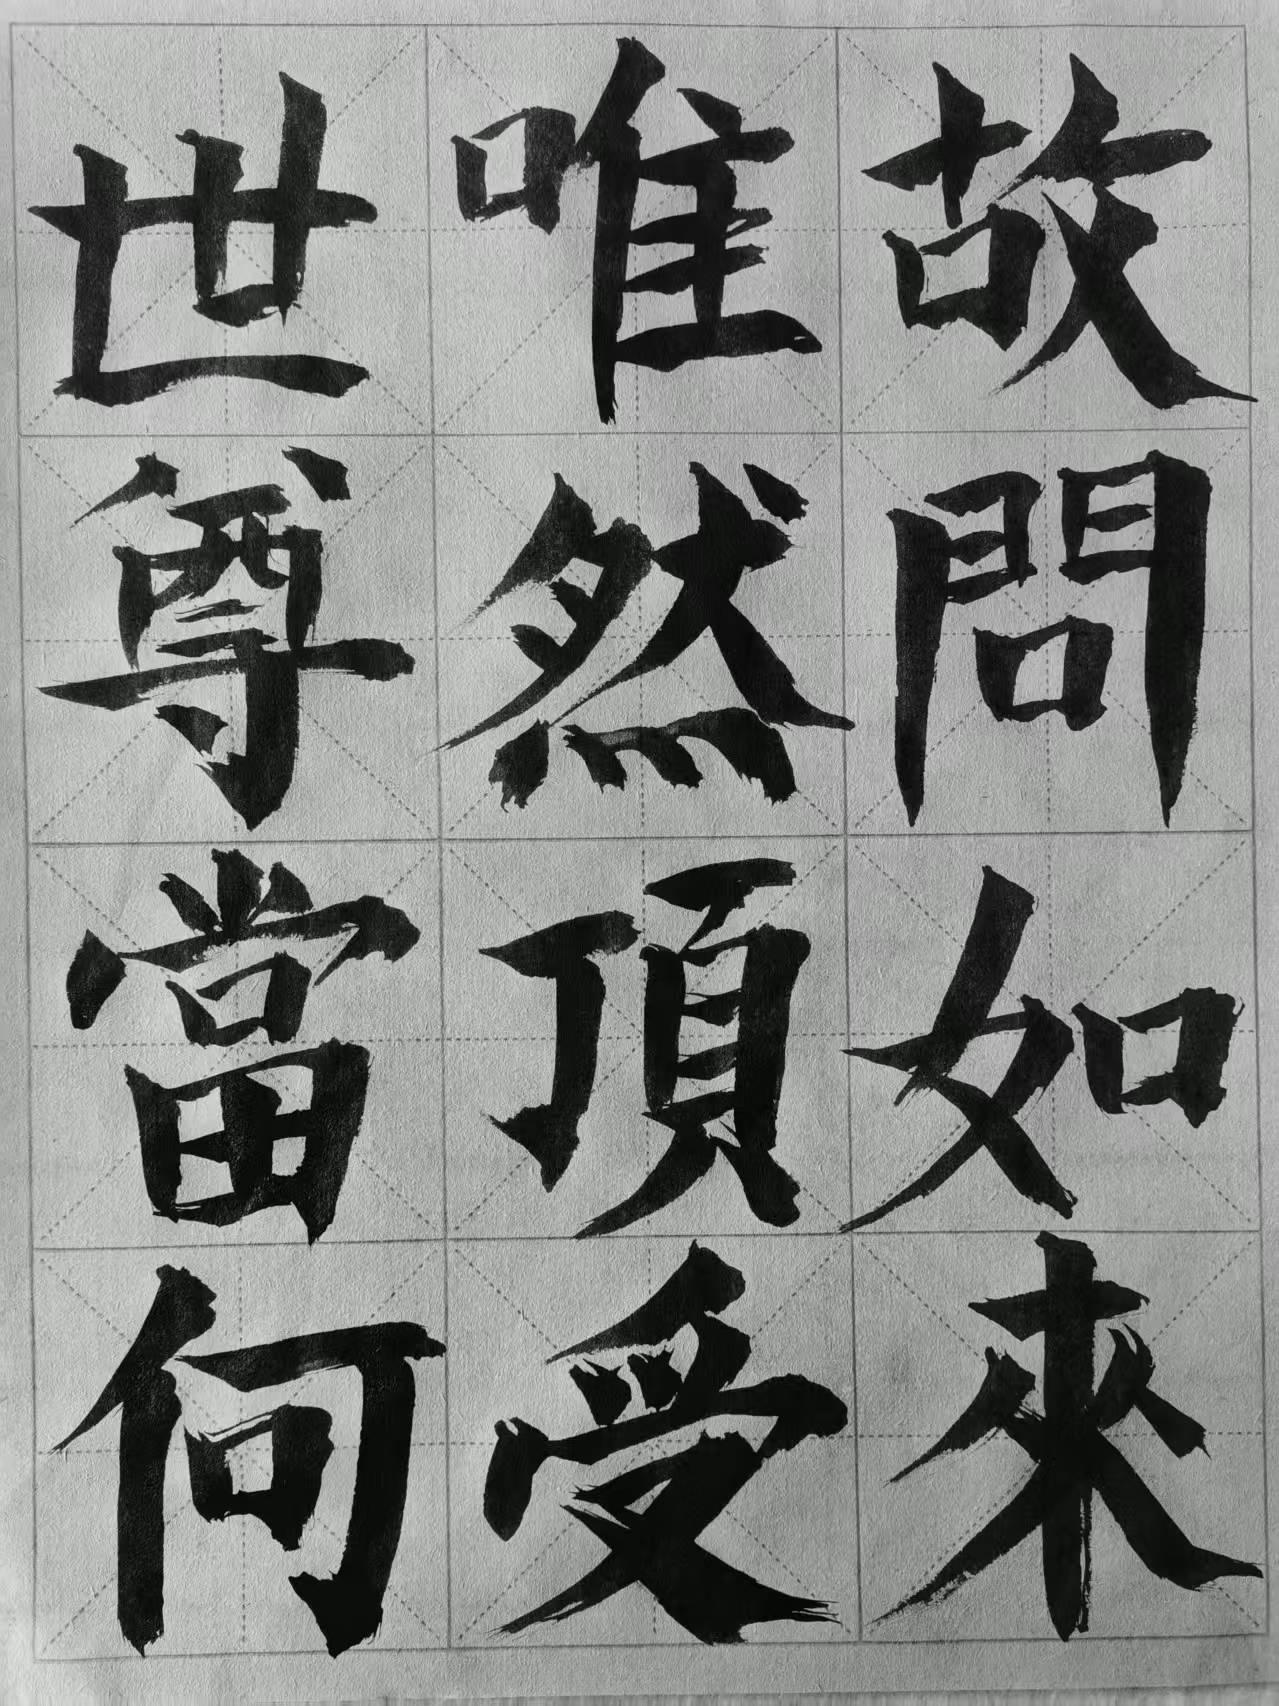 故問如來
唯然頂受
世尊當何